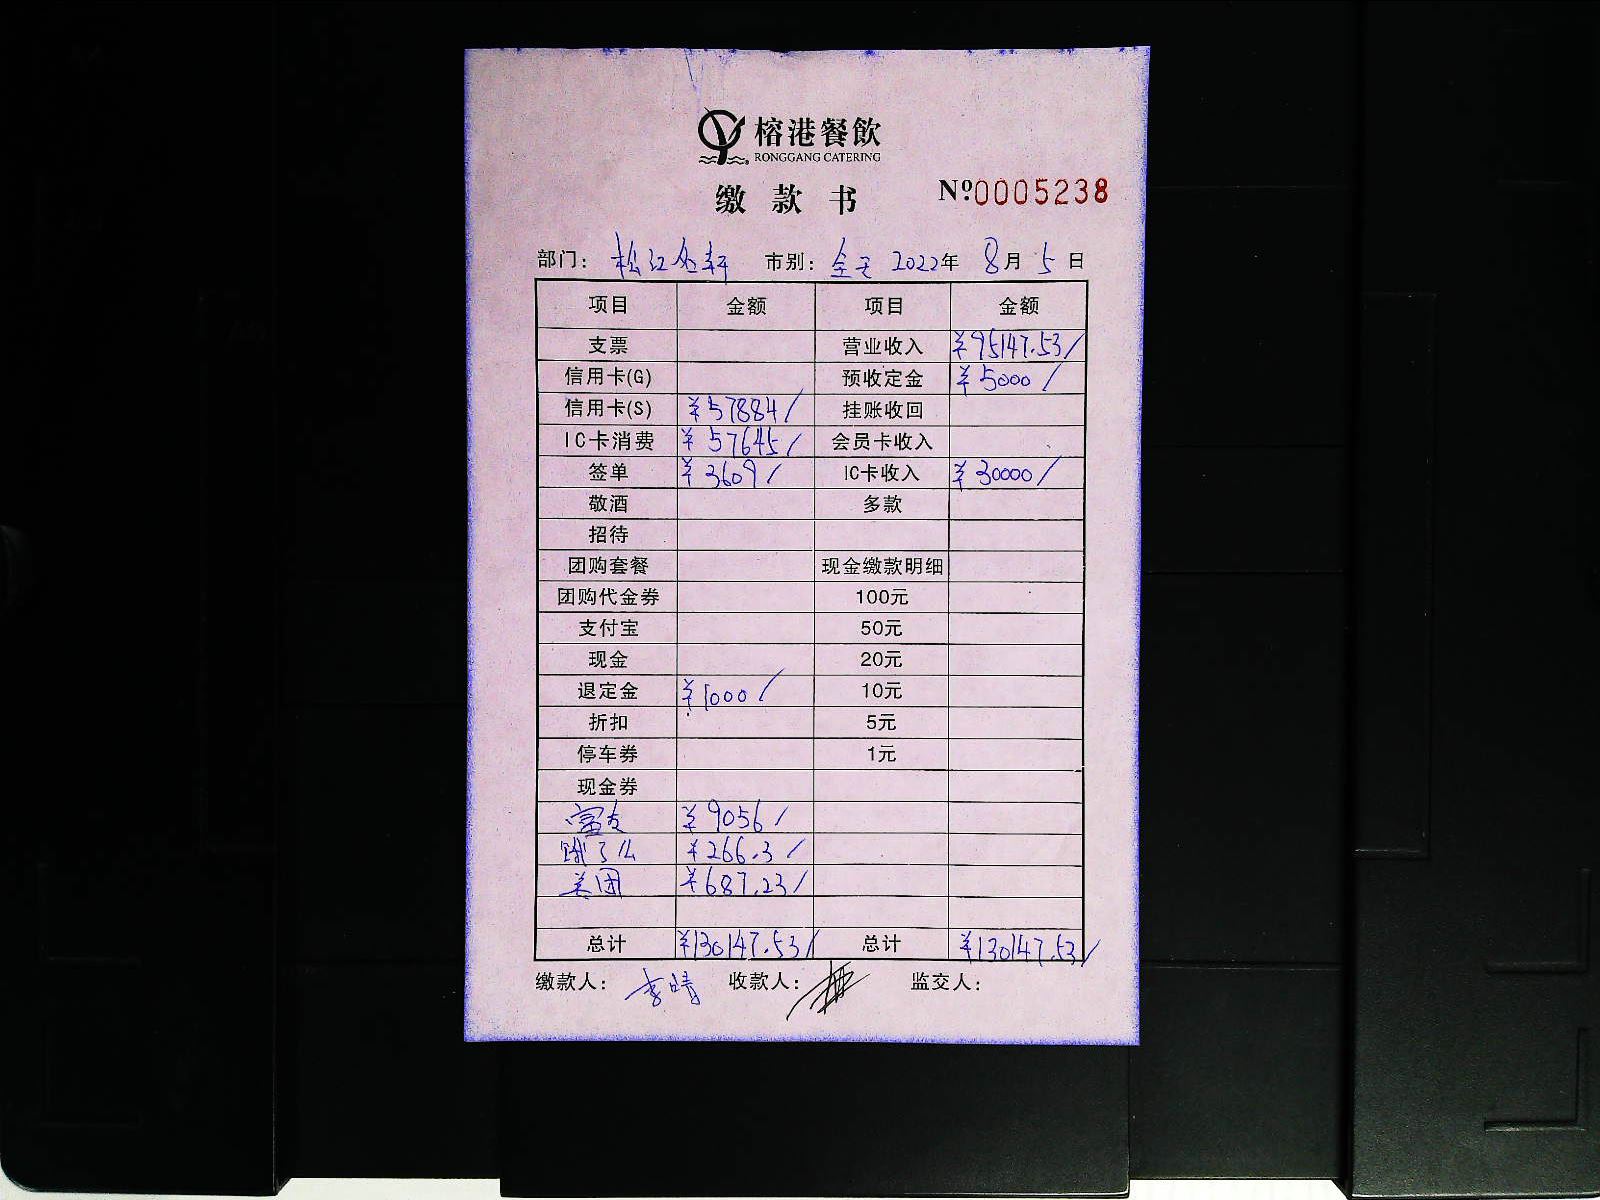 榕港餐飲
RONGGANG CATERING
缴款书 №0005238
部门：松江金轩 市别：全天 2022年 8月 5日
项目 金额 项目 金额
支票 营业收入 ¥95147.53/
信用卡(G) 预收定金 ¥5000/
信用卡(S) ¥57884/ 挂账收回
IC卡消费 ¥57645/ 会员卡收入
签单 ¥3609/ IC卡收入 ¥30000/
敬酒 多款
招待
团购套餐 现金缴款明细
团购代金券 100元
支付宝 50元
现金 20元
退定金 ¥1000/ 10元
折扣 5元
停车券 1元
现金券
富友 ¥9056/
饿了么 ¥266.3/
美团 ¥687.23/
总计 ¥130147.53/ 总计 ¥130147.53/
缴款人：李晴 收款人： 监交人：